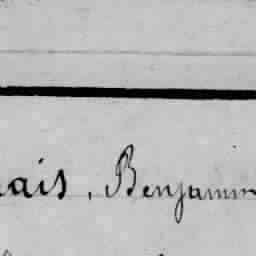 ais, Benjamin